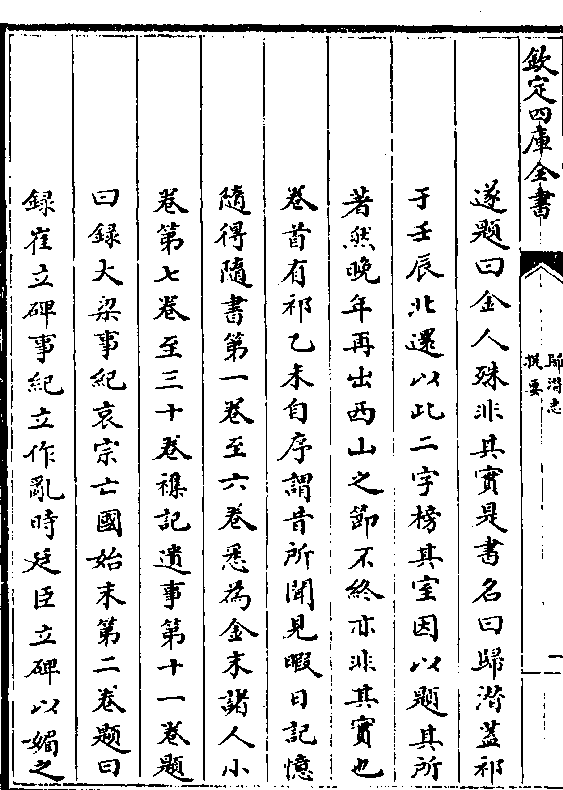 欽定四庫全書
歸潛志
提要
一
遂題曰金人殊非其實是書名曰歸潛蓋祁
于壬辰北還以此二字榜其室因以題其所
著然晚年再出西山之節不終亦非其實也
卷首有祁乙未自序謂昔所聞見暇日記憶
隨得隨書第一卷至六卷悉為金末諸人小
卷第七卷至三十卷襍記遺事第十一卷題
曰録大梁事紀哀宗亡國始末第二卷題曰
録崔立碑事紀立作亂時廷臣立碑以媚之